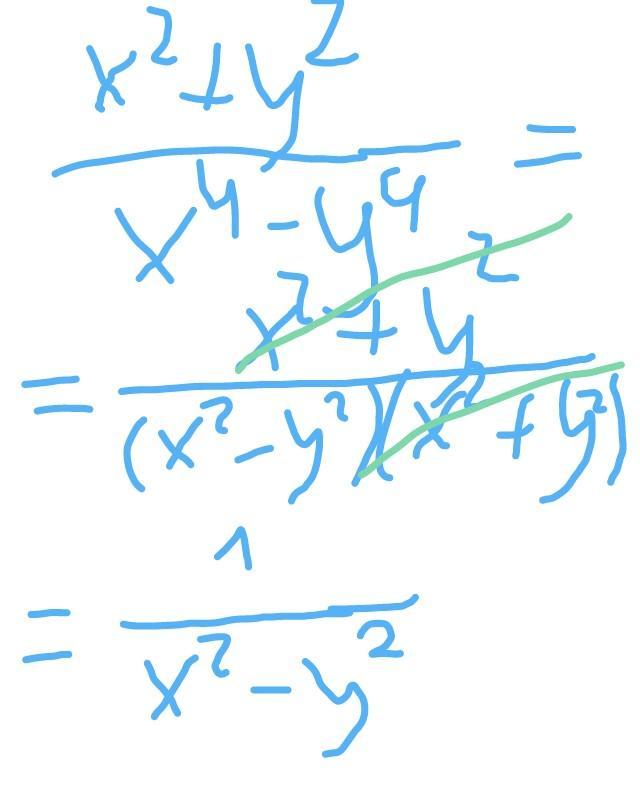 x²+y²
x⁴-y⁴ =
= x²+y²
(x²-y²)(x²+y²)
= 1
x²-y²